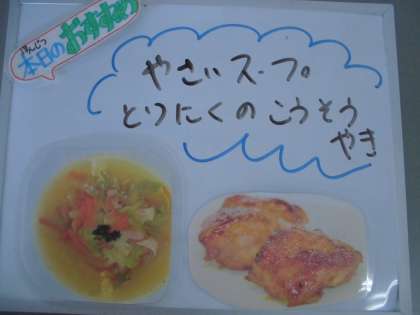 ほんじつ
本日のおすすめ
やさいスープ
とりにくのこうそう
やき